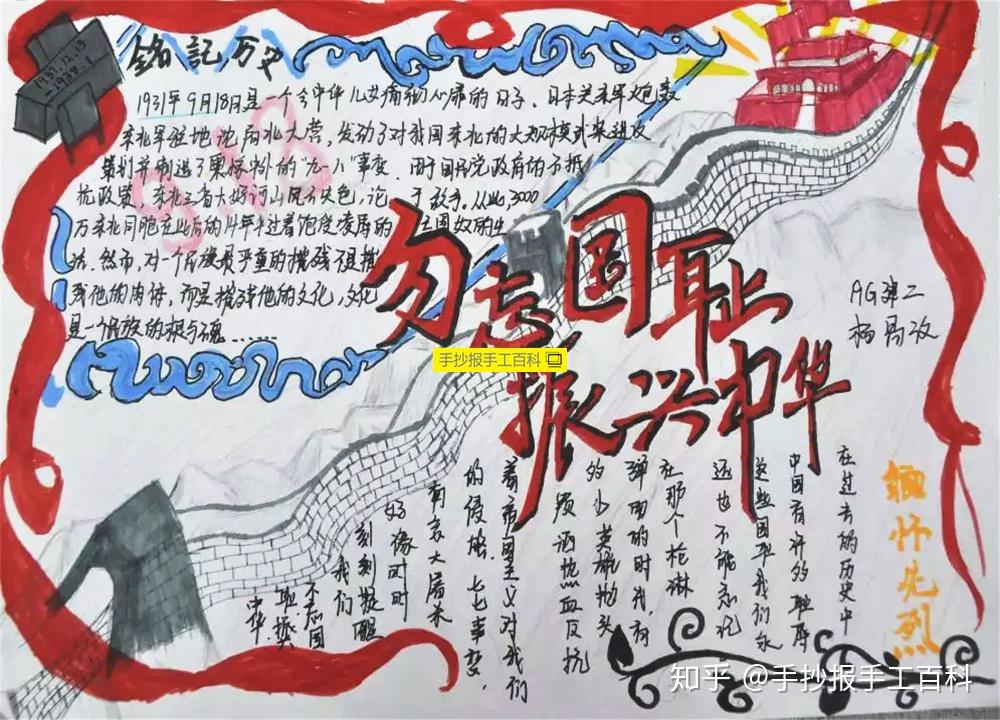 1937.12.13
-1938.1
铭記历史
1931年9月18日是一个令中华儿女痛彻心扉的日子,日本关东军炮轰
东北军驻地沈阳北大营,发动了对我国东北的大规模武装进攻
策划并制造了震惊中外的"九一八"事变。由于国民党政府的不抵
抗政策,东北三省大好河山风云失色,沦于敌手,从此,3000
万东北同胞在此后的14年中过着饱受凌辱的亡国奴的生
活。然而,对一个民族最严重的摧残不是摧
残他的肉体,而是摧残他的文化,文化
是一个民族的根与魂......
勿忘国耻
振兴中华
手抄报手工百科
缅怀先烈
在过去的历史中
中国有许多耻辱
这些国耻我们永
远也不能忘记
在那个枪淋
弹雨的时代,有
多少英雄抛头
颅洒热血反抗
着帝国主义对我们
的侵略,七七事变,
南京大屠杀
好像时时
刻刻提醒
我们
不忘国
耻振兴
中华
知乎 @手抄报手工百科